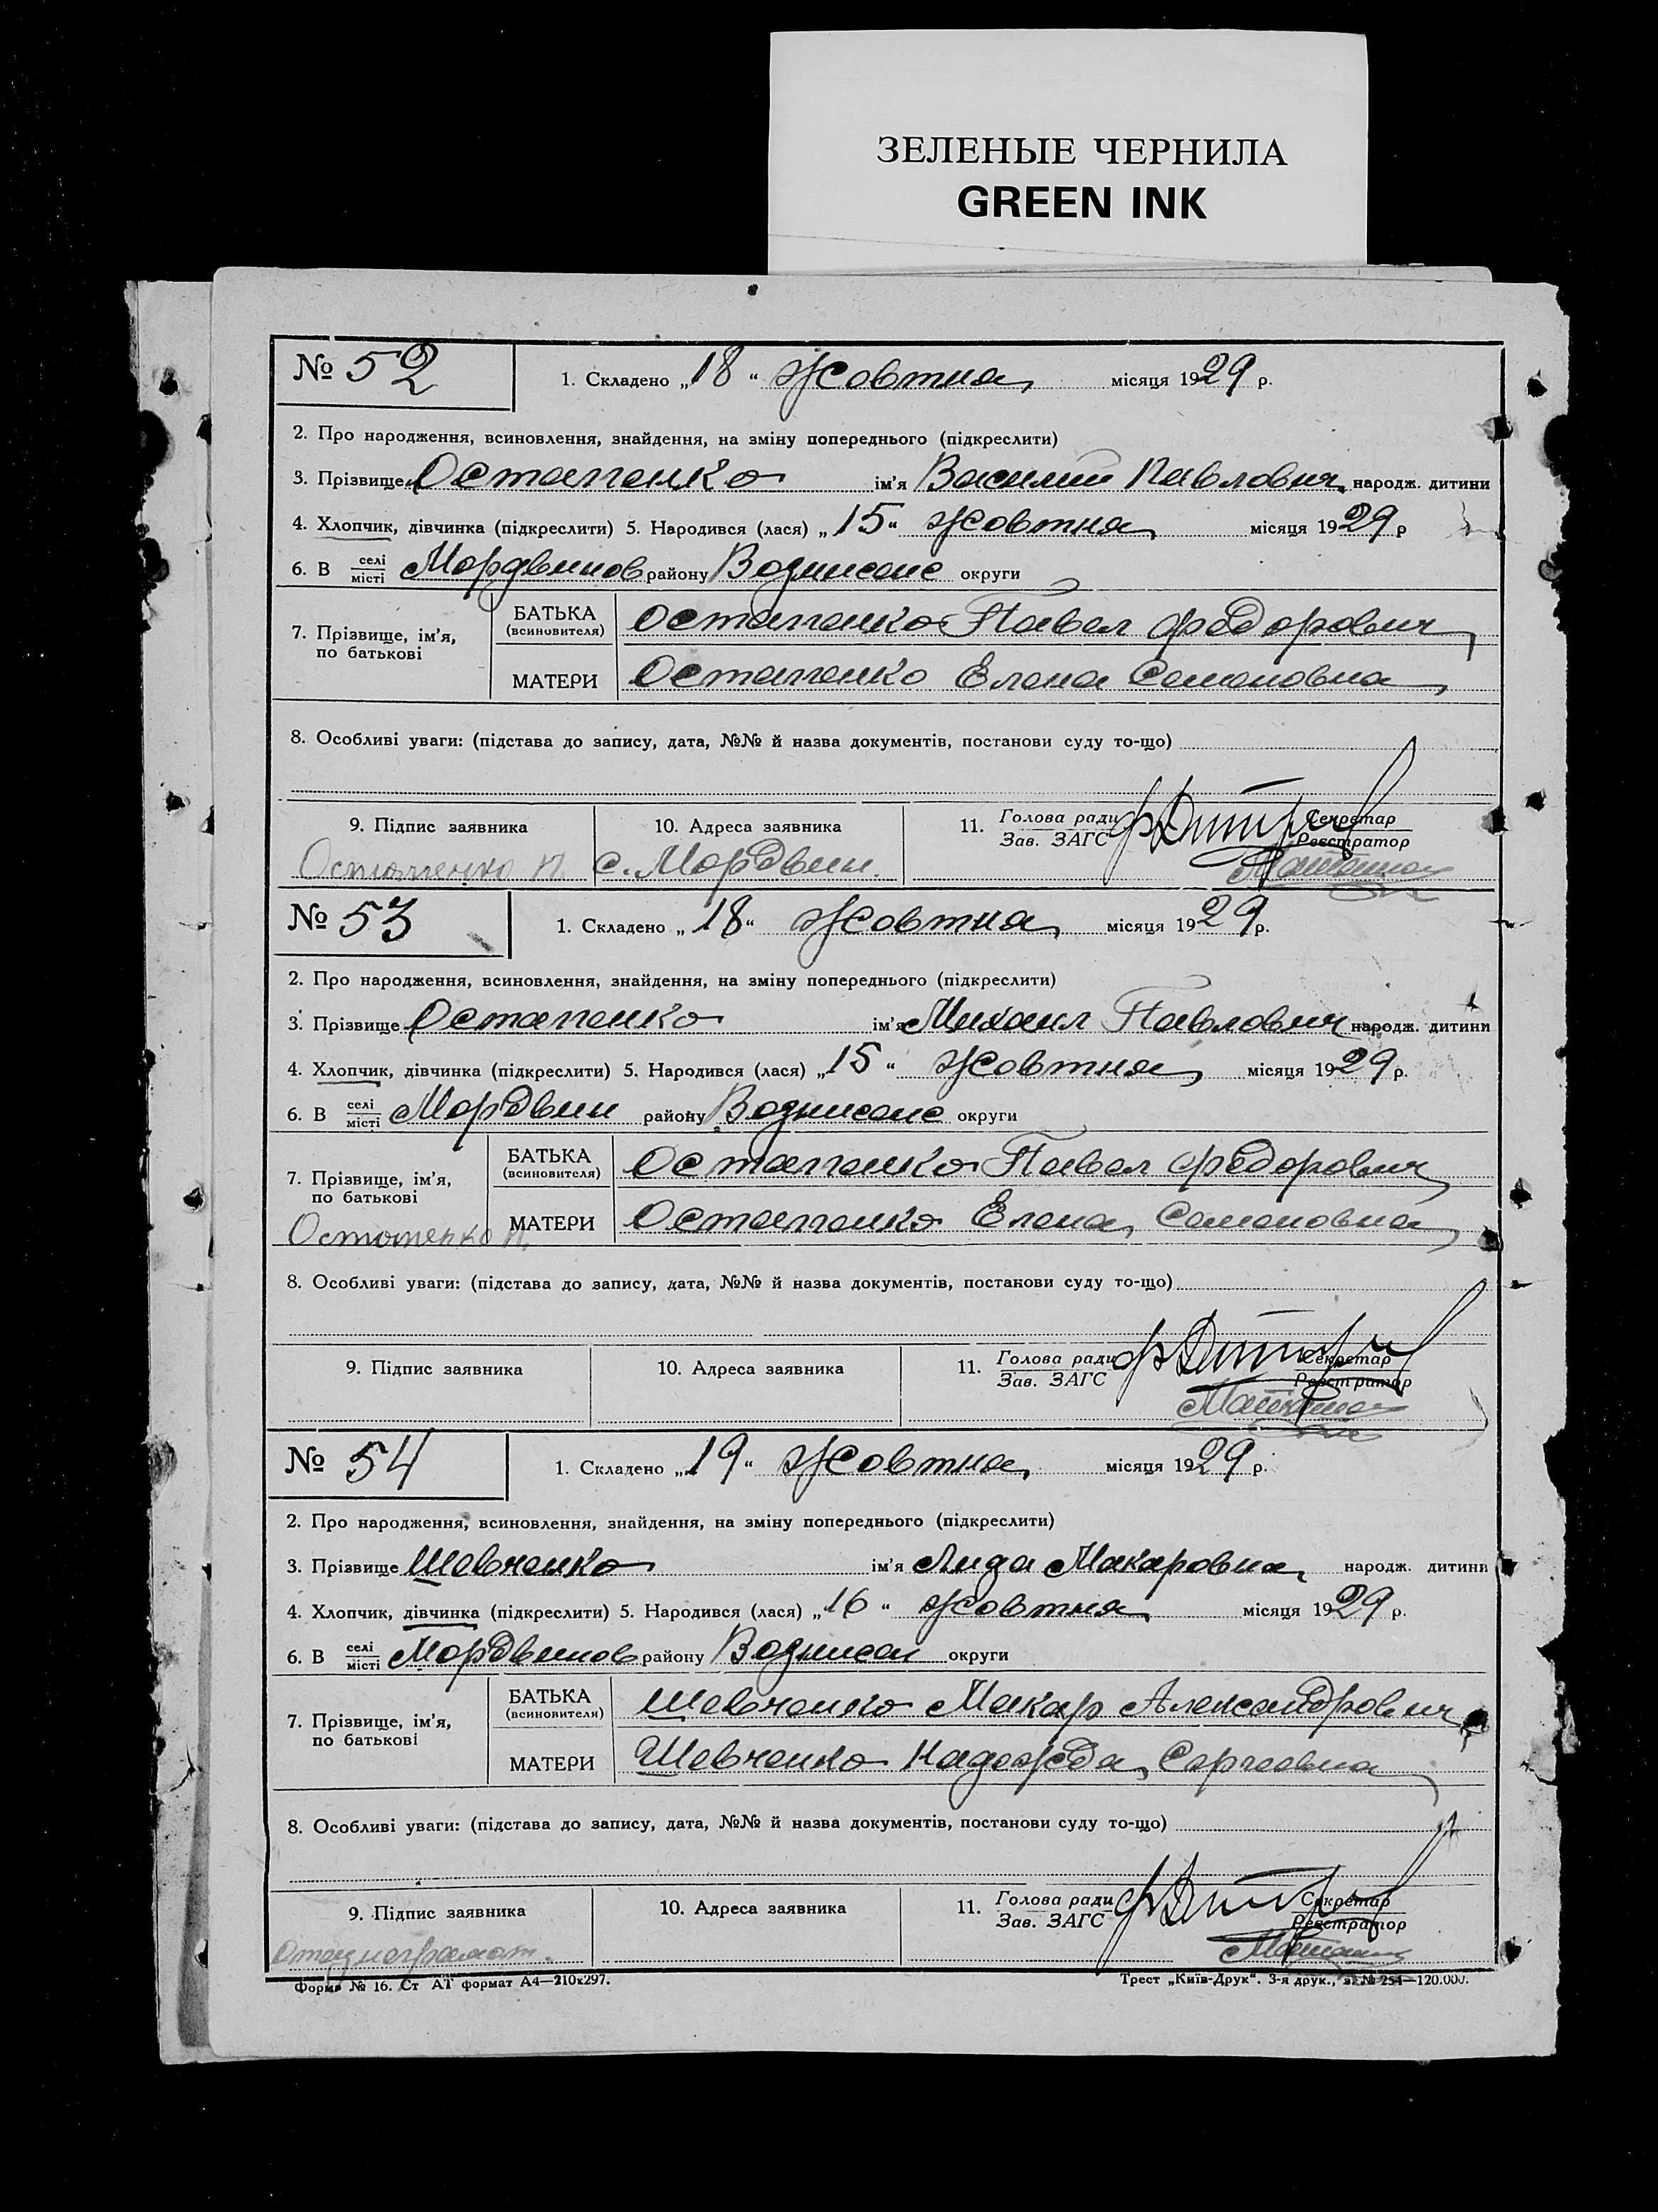 ЗЕЛЕНЫЕ ЧЕРНИЛА
GREEN INK
№ 52
1. Складено „18“ Жовтня місяця 1929 р.
2. Про народження, всиновлення, знайдення, на зміну попереднього (підкреслити)
3. Прізвище Остапенко ім'я Василий Павлович народж. дитини
4. Хлопчик, дівчинка (підкреслити) 5. Народився (лася) „15“ Жовтня місяця 1929 р
6. В селі місті Мордвинов району Вознисенс округи
7. Прізвище, ім'я, по батькові
БАТЬКА (всиновителя) Остапенко Павел Федорович
МАТЕРИ Остапенко Елена Семеновна
8. Особливі уваги: (підстава до запису, дата, №№ й назва документів, постанови суду то-що)
9. Підпис заявника 10. Адреса заявника 11. Голова ради Зав. ЗАГС Секретар Реєстратор
Остапенко П. с. Мордвин.
№ 53
1. Складено „18“ Жовтня місяця 1929 р.
2. Про народження, всиновлення, знайдення, на зміну попереднього (підкреслити)
3. Прізвище Остапенко ім'я Михаил Павлович народж. дитини
4. Хлопчик, дівчинка (підкреслити) 5. Народився (лася) „15“ Жовтня місяця 1929 р.
6. В селі місті Мордвин району Вознисенс округи
7. Прізвище, ім'я, по батькові
БАТЬКА (всиновителя) Остапенко Павел Федорович
Остапенко П.
МАТЕРИ Остапенко Елена Семеновна
8. Особливі уваги: (підстава до запису, дата, №№ й назва документів, постанови суду то-що)
9. Підпис заявника 10. Адреса заявника 11. Голова ради Зав. ЗАГС Секретар Реєстратор
№ 54
1. Складено „19“ Жовтня місяця 1929 р.
2. Про народження, всиновлення, знайдення, на зміну попереднього (підкреслити)
3. Прізвище Шевченко ім'я Лида Макаровна народж. дитини
4. Хлопчик, дівчинка (підкреслити) 5. Народився (лася) „16“ Жовтня місяця 1929 р.
6. В селі місті Мордвинов району Вознисен округи
7. Прізвище, ім'я, по батькові
БАТЬКА (всиновителя) Шевченко Макар Александрович
МАТЕРИ Шевченко Надежда Сергеевна
8. Особливі уваги: (підстава до запису, дата, №№ й назва документів, постанови суду то-що)
9. Підпис заявника 10. Адреса заявника 11. Голова ради Зав. ЗАГС Секретар Реєстратор
Отец неграмот.
Форма № 16. Ст АТ формат А4—210х297.
Трест „Київ-Друк“. 3-я друк., з. № 254—120.000.